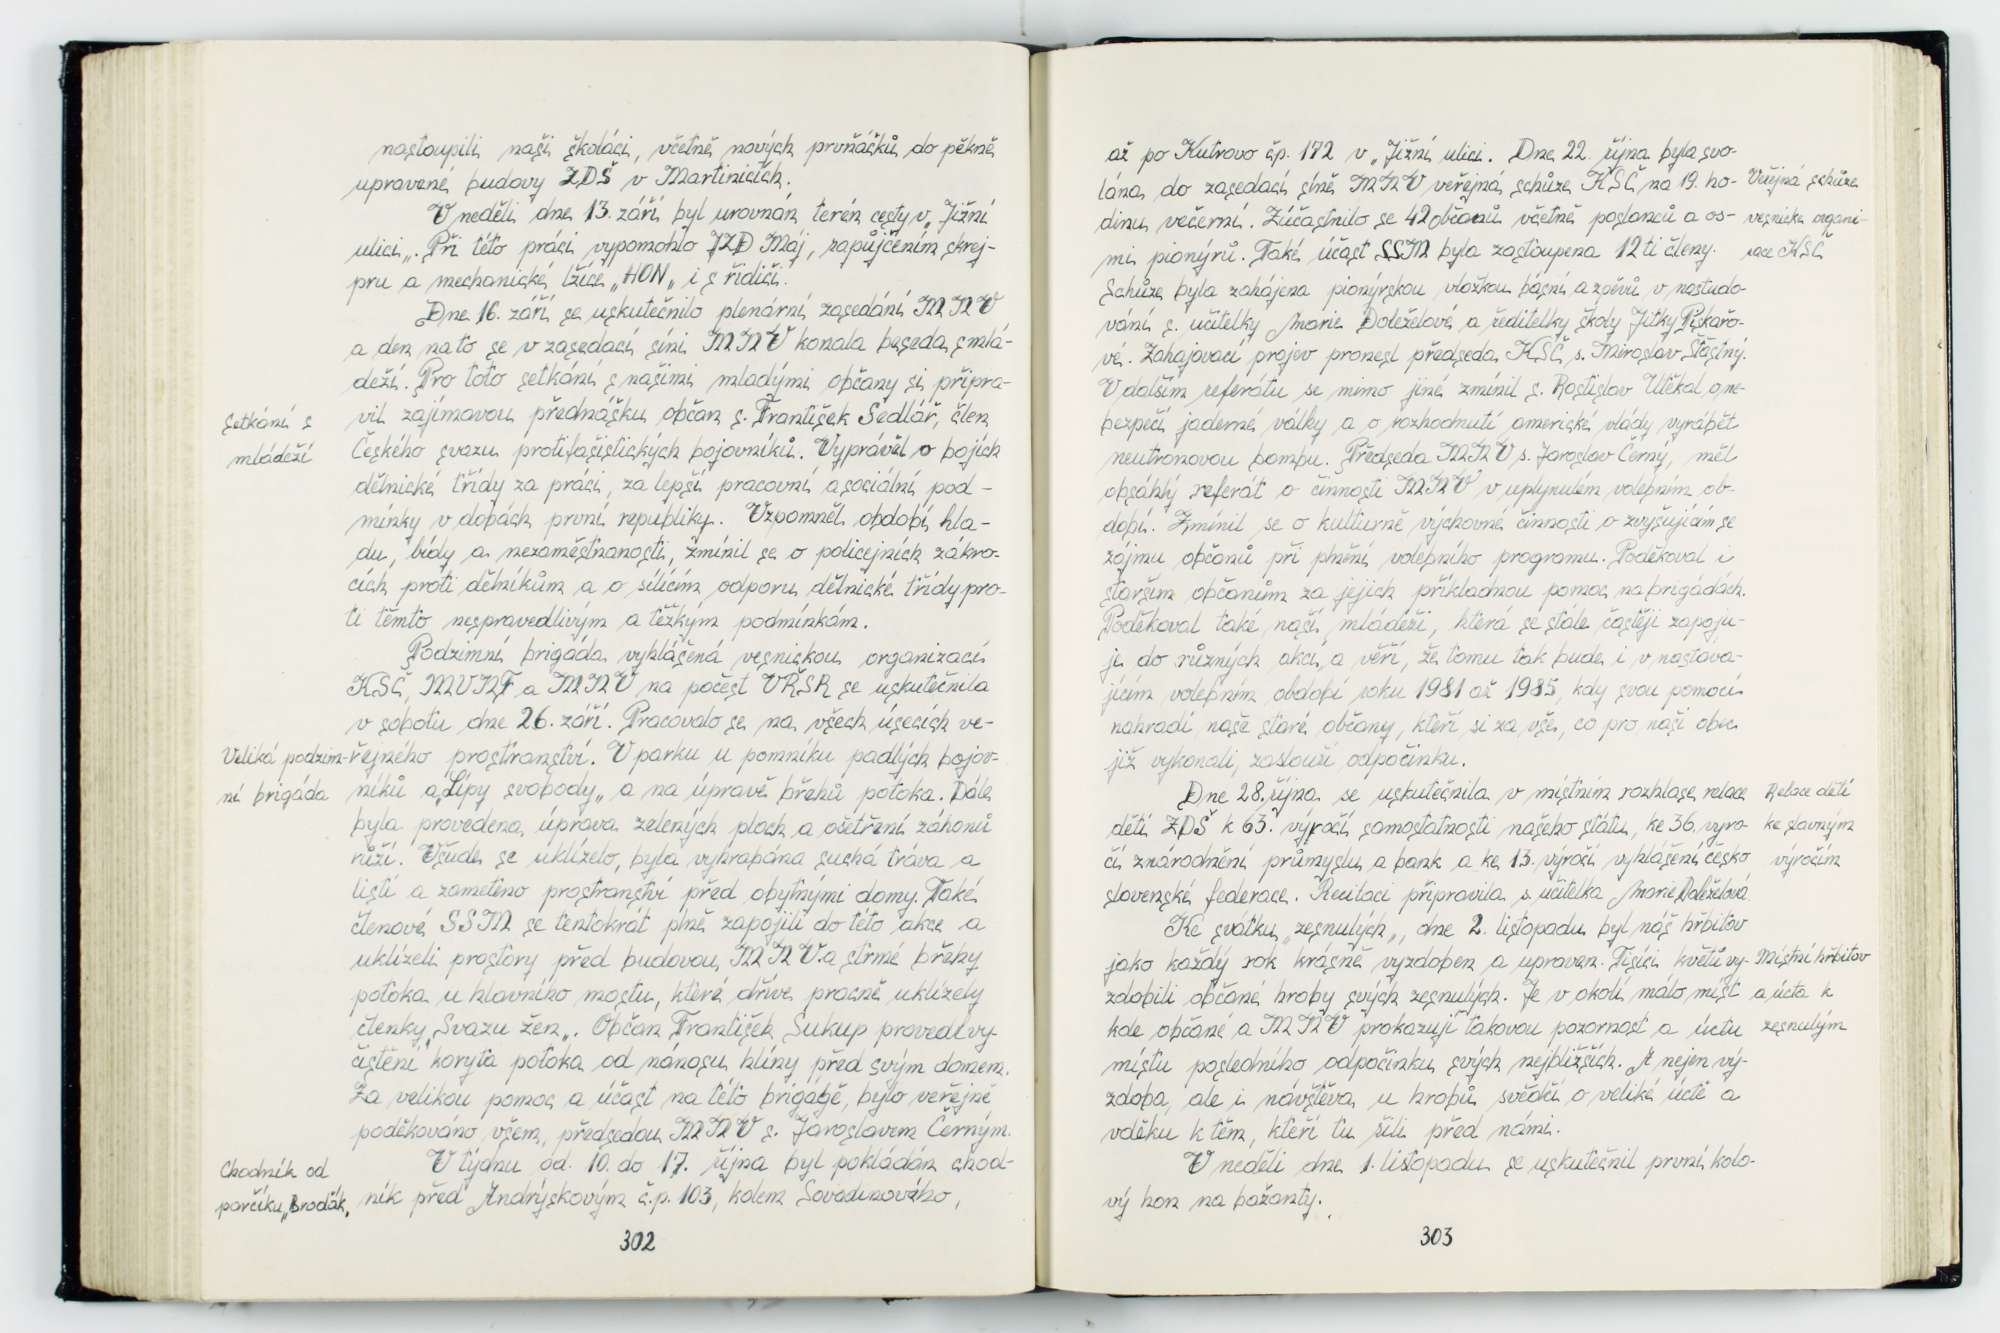 nastoupili naši školáci, včetně nových prvňáčků do pěkně
upravené budovy ZDŠ v Martinicích.
V neděli dne 13. září byl urovnán terén cesty v „Jižní
ulici„. Při této práci vypomohlo JZD Máj, zapůjčením skrej-
pru a mechanické lžíce „HON„ i s řidiči.
Dne 16. září se uskutečnilo plenární zasedání MNV
a den na to se v zasedací síni MNV konala beseda s mlá-
deží. Pro toto setkání s našimi mladými občany si připra-
vil zajímavou přednášku občan s. František Sedlář, člen
Setkání s
mládeží
Českého svazu protifašistických bojovníků. Vyprávěl o bojích
dělnické třídy za práci, za lepší pracovní a sociální pod-
mínky v dobách první republiky. Vzpomněl období hla-
du, bídy a nezaměstnanosti, zmínil se o policejních zákro-
cích proti dělníkům a o sílícím odporu dělnické třídy pro-
ti těmto nespravedlivým a těžkým podmínkám.
Podzimní brigáda vyhlášená vesnickou organizací
KSČ, MVNF a MNV na počest VŘSR se uskutečnila
v sobotu dne 26. září. Pracovalo se na všech úsecích ve-
Veliká podzim-
ní brigáda
řejného prostranství. V parku u pomníku padlých bojov-
níků a „Lípy svobody„ a na úpravě břehů potoka. Dále
byla provedena úprava zelených ploch a ošetření záhonů
růží. Všude se uklízelo, byla vyhrabána suchá tráva a
listí a zameteno prostranství před obytnými domy. Také
členové SSM se tentokrát plně zapojili do této akce a
uklízeli prostory před budovou MNV a strmé břehy
potoka u hlavního mostu, které dříve pracně uklízely
členky „Svazu žen„. Občan František Sukup provedl vy-
čistění koryta potoka od nánosu hlíny před svým domem.
Za velikou pomoc a účast na této brigádě, bylo veřejně
poděkováno všem, předsedou MNV s. Jaroslavem Černým.
Chodník od
parčíku „Brodák„
V týdnu od. 10. do 17. října byl pokládán chod-
ník před Andrýskovým č.p. 103, kolem Sovadinového,
302
až po Kutrovo čp. 172 v „Jižní ulici. Dne 22. října byla svo-
lána do zasedací síně MNV veřejná schůze KSČ na 19. ho-
dinu večerní. Zúčastnilo se 42 občanů včetně poslanců a os-
mi pionýrů. Také účast SSM byla zastoupena 12 ti členy.
Veřejná schůze
vesnické organi-
zace KSČ
Schůze byla zahájena pionýrskou vložkou básní a zpěvů v nastudo-
vání s. učitelky Marie Doleželové a ředitelky školy Jitky Piskařo-
vé. Zahajovací projev pronesl předseda KSČ s. Miroslav Šťastný.
V dalším referátu se mimo jiné zmínil s. Rostislav Utěkal o ne-
bezpečí jaderné války a o rozhodnutí americké vlády vyrábět
neutronovou bombu. Předseda MNV s. Jaroslav Černý, měl
obsáhlý referát o činnosti MNV v uplynulém volebním ob-
dobí. Zmínil se o kulturně výchovné činnosti o zvyšujícím se
zájmu občanů při plnění volebního programu. Poděkoval i
starším občanům za jejich příkladnou pomoc na brigádách.
Poděkoval také naší mládeži, která se stále častěji zapoju-
je do různých akcí, a věří, že tomu tak bude i v nastáva-
jícím volebním období roku 1981 až 1985, kdy svou pomocí
nahradí naše staré občany, kteří si za vše, co pro naši obec
již vykonali, zaslouží odpočinku.
Dne 28. října se uskutečnila v místním rozhlase relace
dětí ZDŠ k 63. výročí samostatnosti našeho státu, ke 36. výro-
čí znárodnění průmyslu a bank a ke 13. výročí vyhlášení česko
slovenské federace. Recitaci připravila s. učitelka Marie Doleželová
Relace dětí
ke slavným
výročím
Ke svátku „zesnulých„, dne 2. listopadu byl náš hřbitov
jako každý rok krásně vyzdoben a upraven. Tisíci květů vy-
zdobili občané hroby svých zesnulých. Je v okolí málo míst
kde občané a MNV prokazují takovou pozornost a úctu
Místní hřbitov
a úcta k
zesnulým
místu posledního odpočinku svých nejbližších. A nejen vý-
zdoba, ale i návštěva u hrobů svědčí o veliké úctě a
vděku k těm, kteří tu žili před námi.
V neděli dne 1. listopadu se uskutečnil první kolo-
vý hon na bažanty.
303